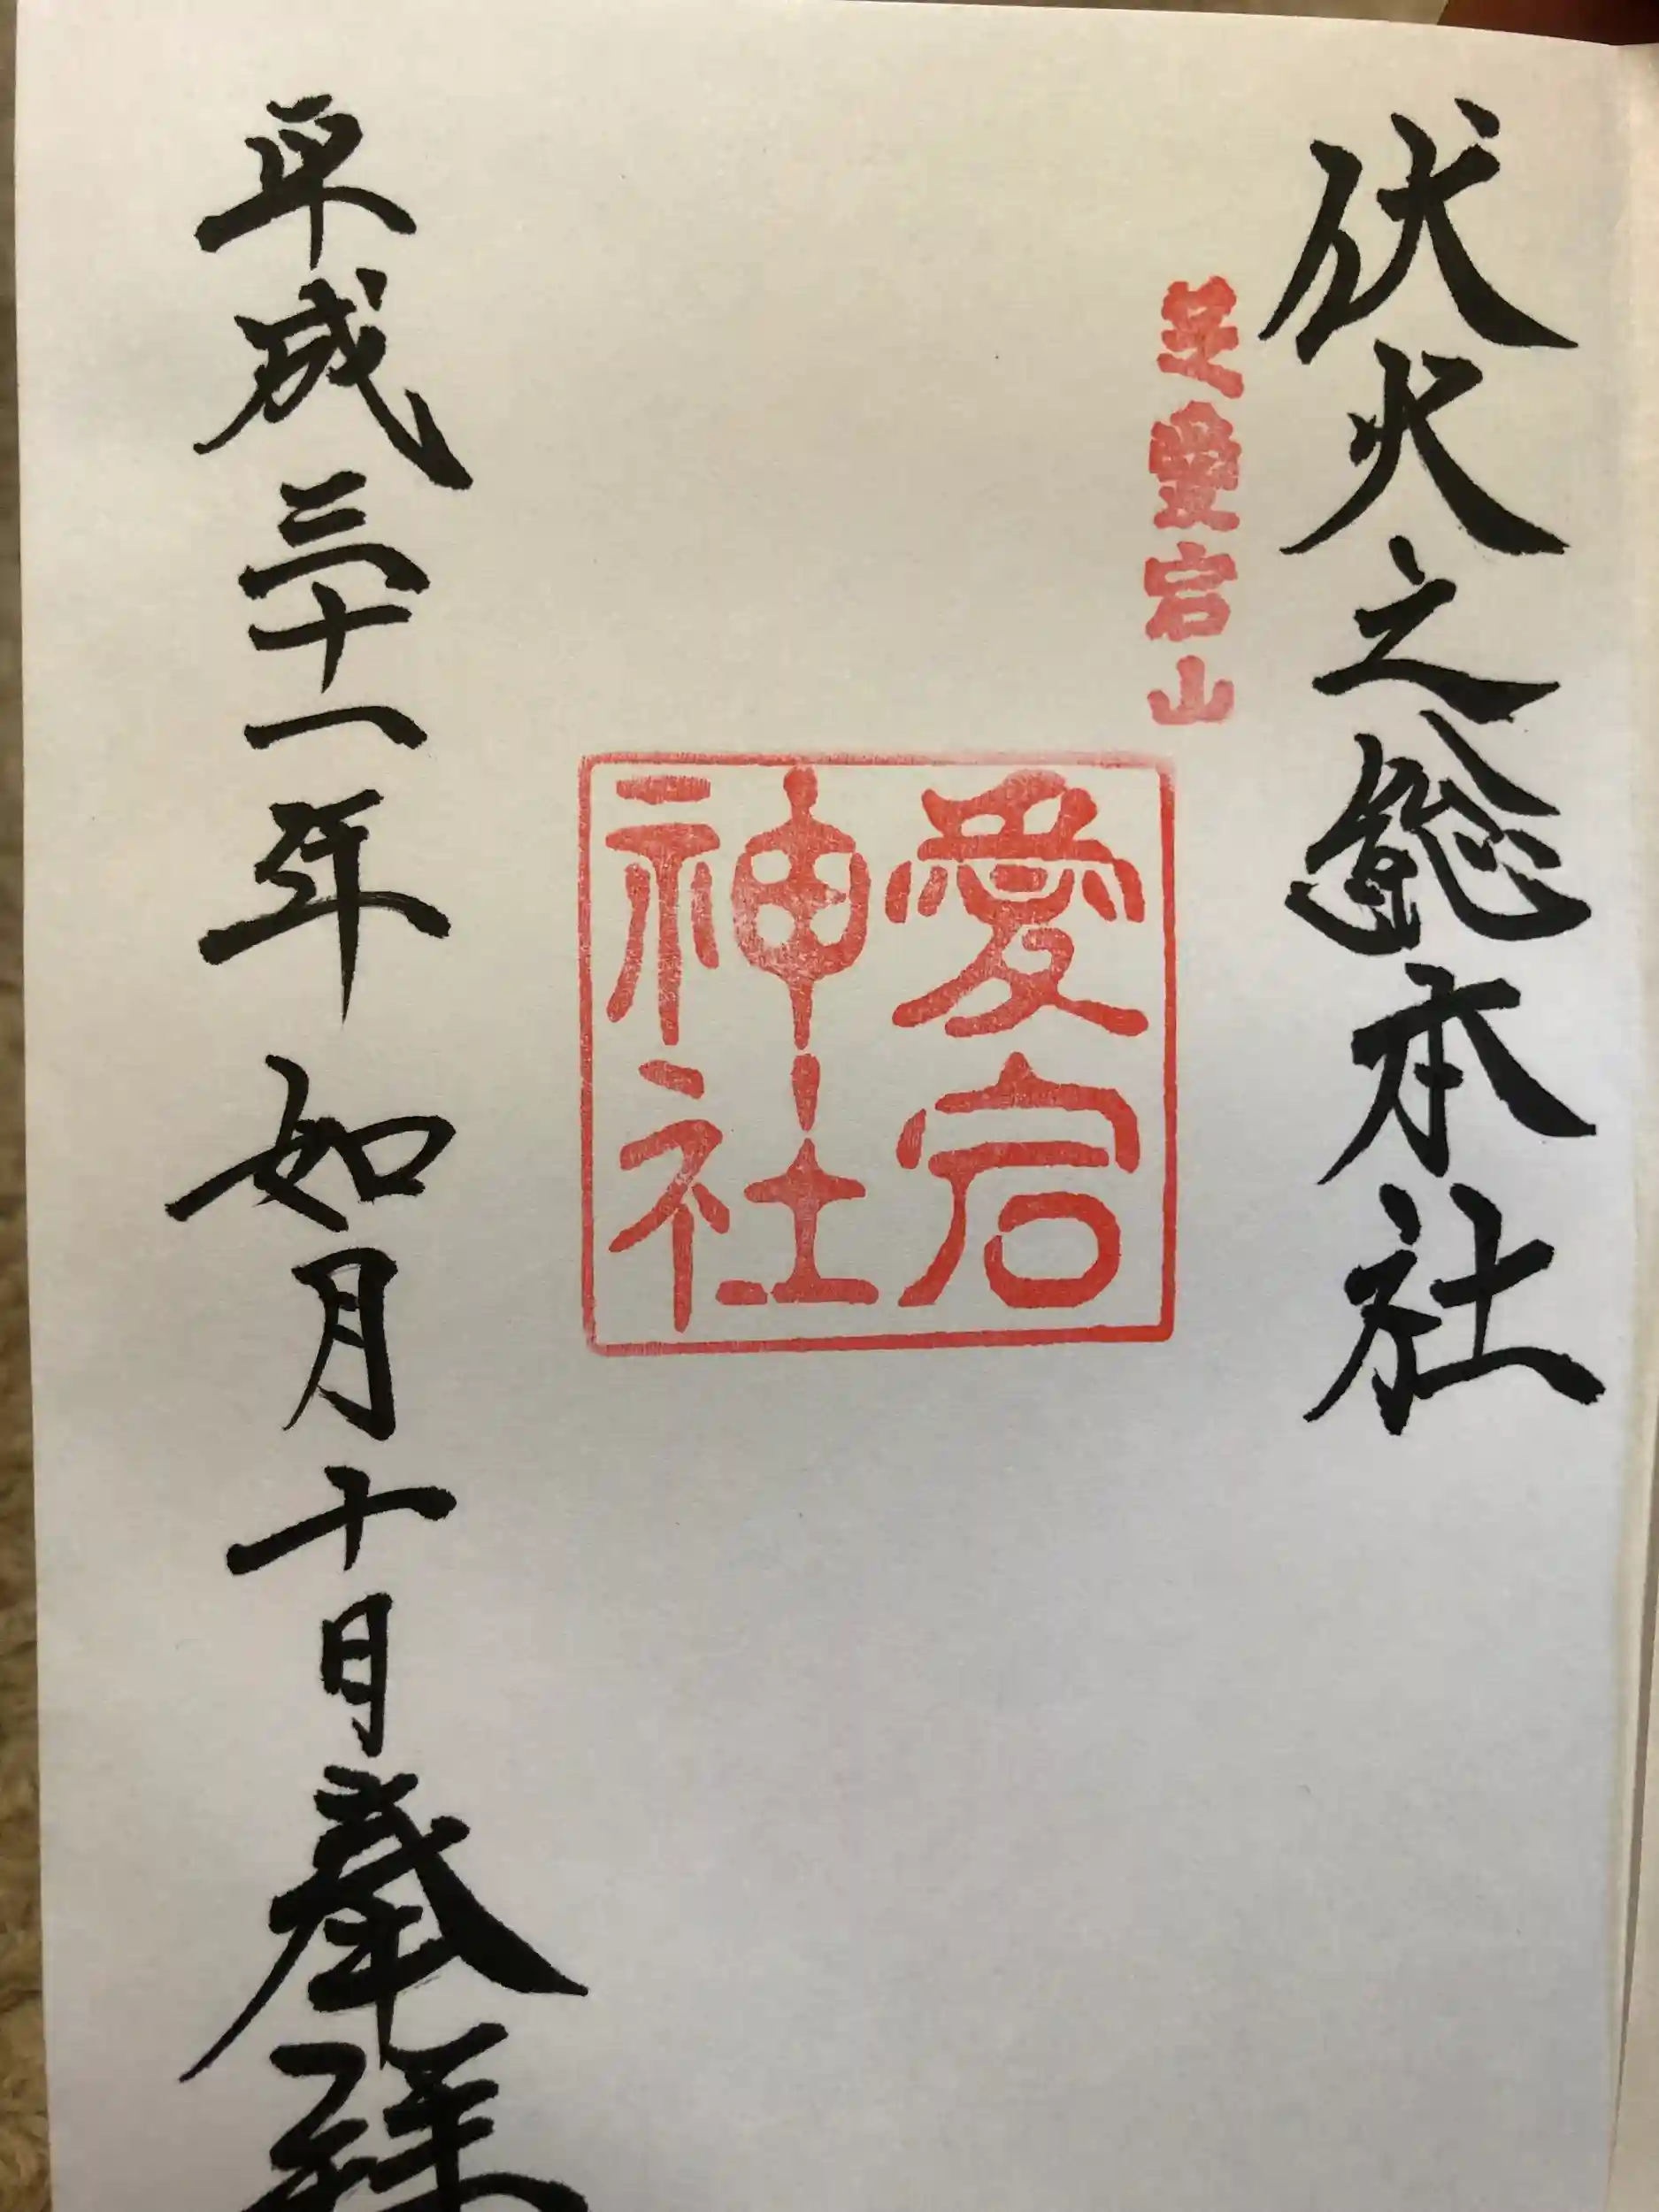 伏火之総本社
芝愛宕山
愛宕
神社
平成三十一年如月十日奉拝